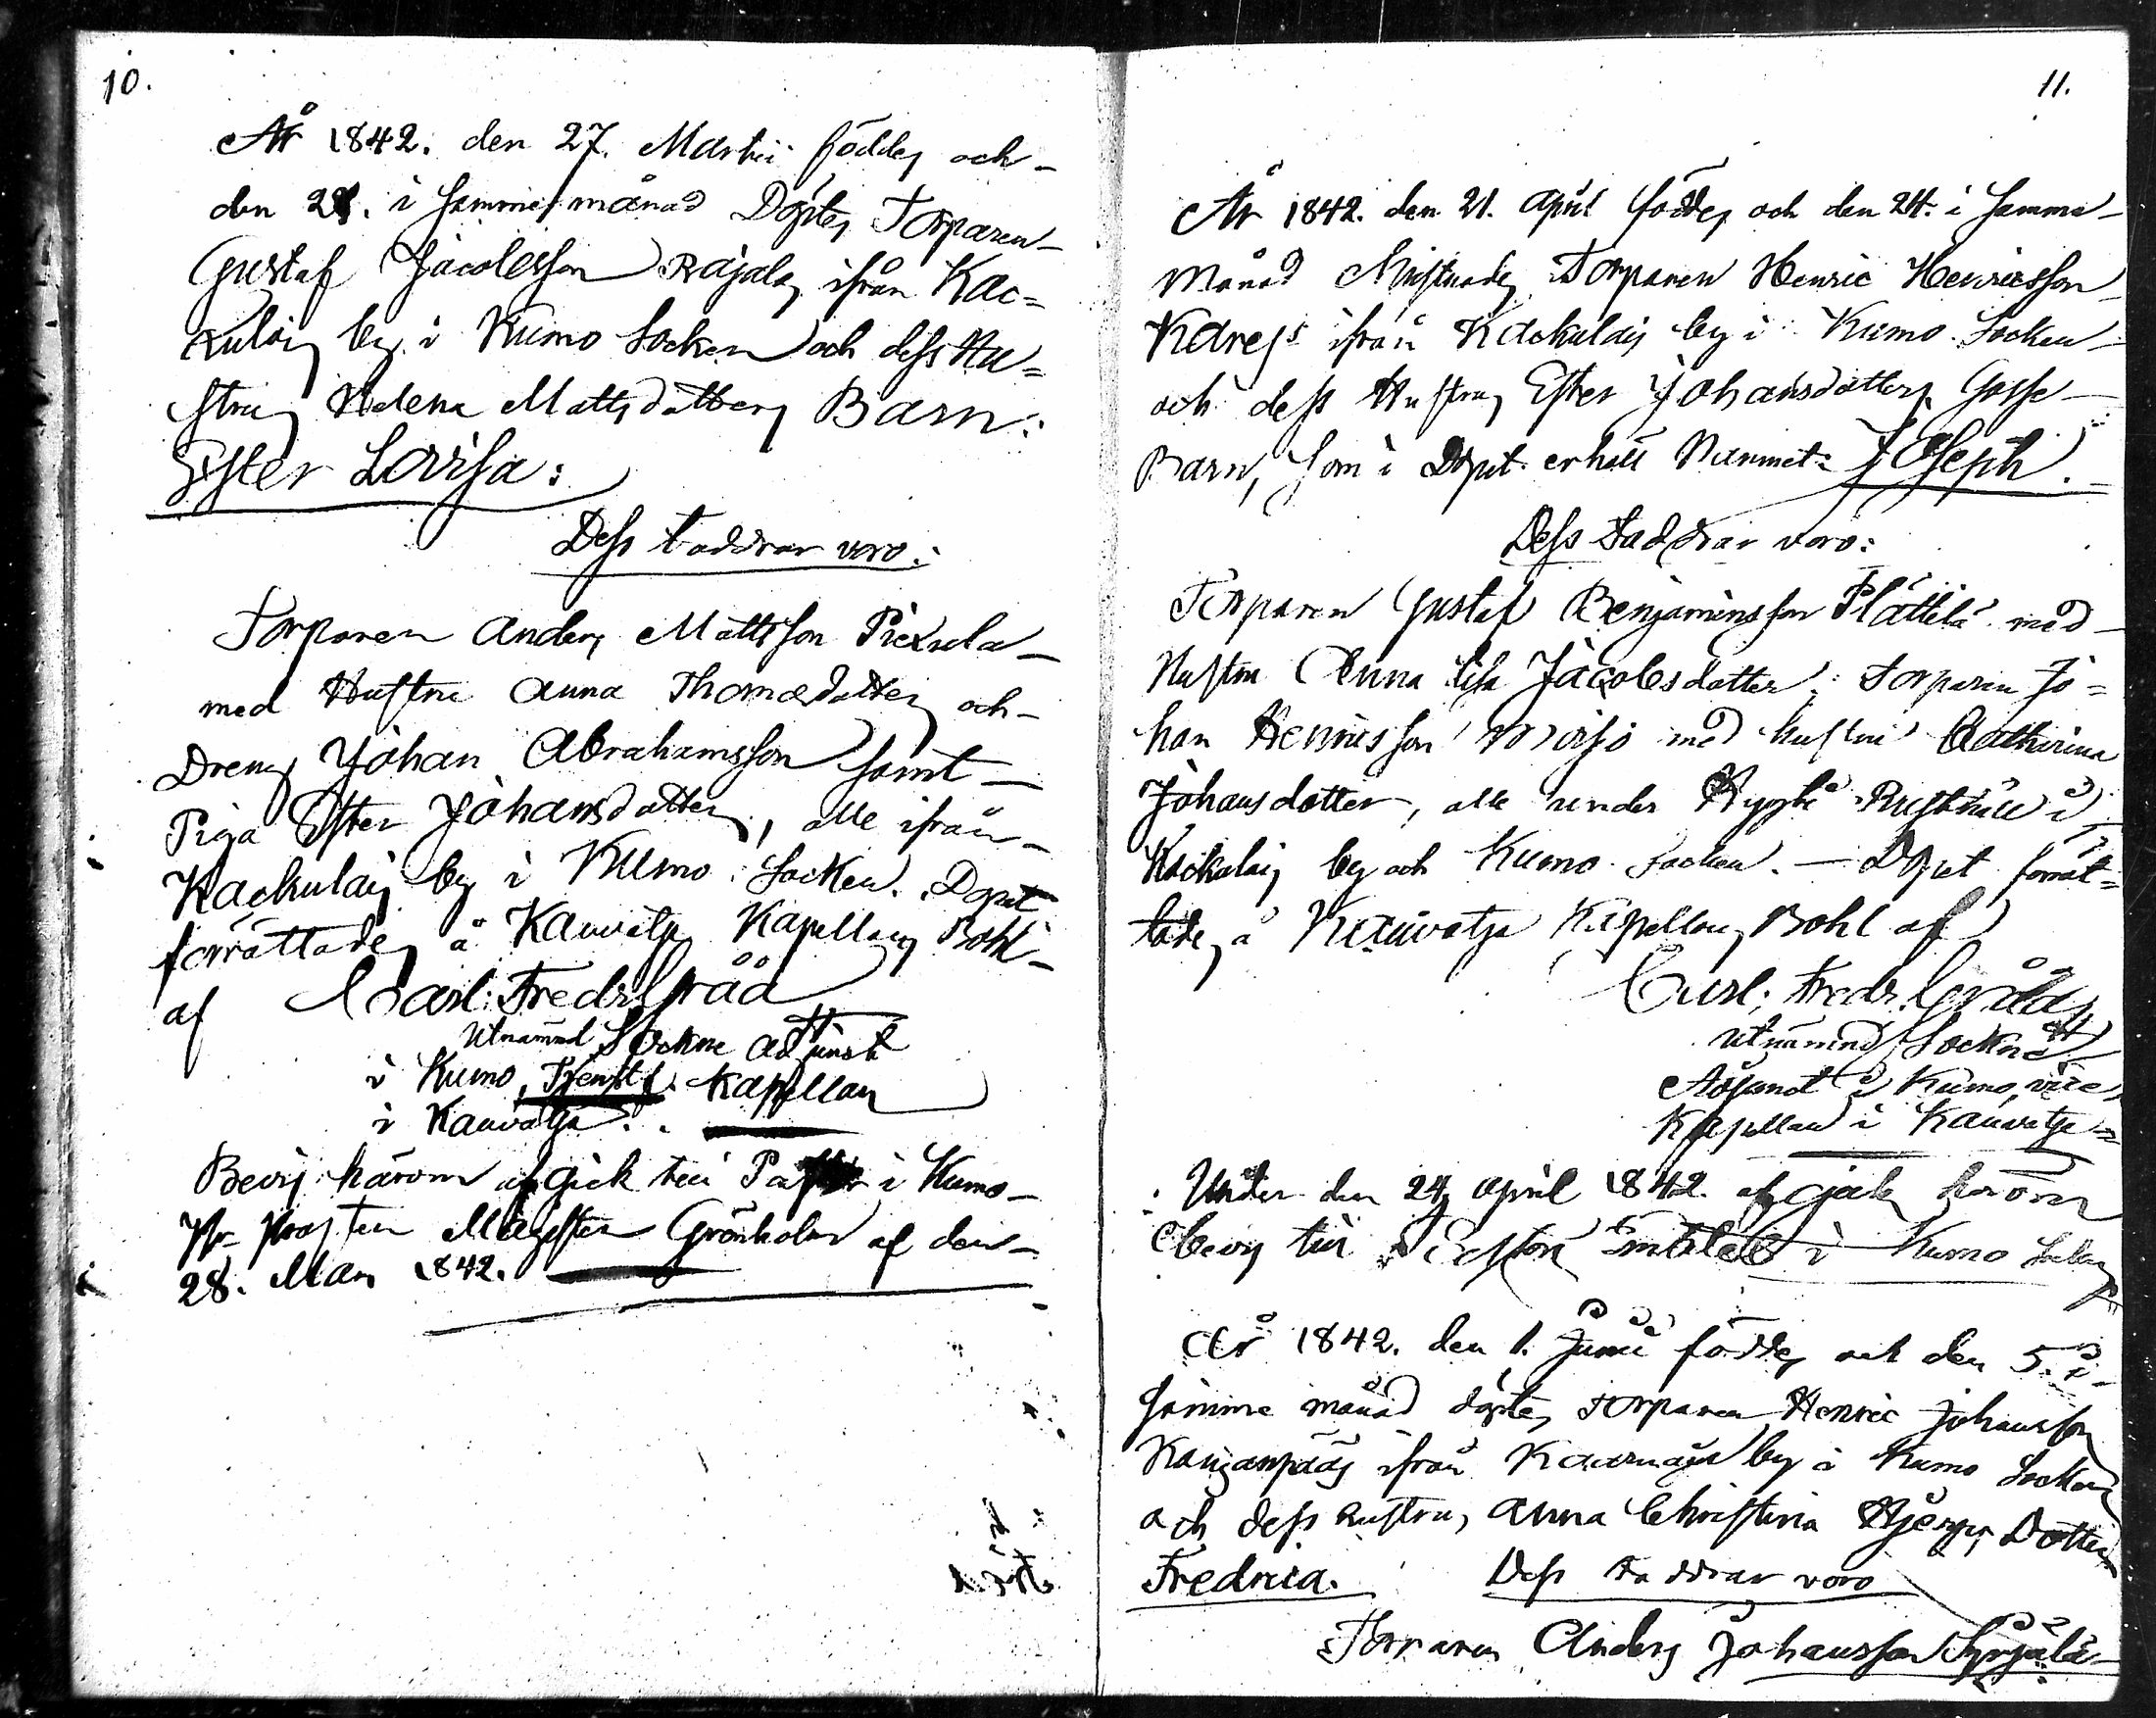 10.
År 1842. den 27. Martii föddes och
den 28. i samme månad Döptes Torparen
Gustaf Jacobsson Rajalas ifrån Kac=
kulais by i Kumo Socken och dess Hu=
strus Helena Mattsdotters Barn:
Ester Lovisa:
Dess faddrar voro:
Torparen Anders Mattsson
med Hustru Anna Thomasdotter och
Dreng Johan Abrahamsson samt
Piga Ester Johansdotter, alle ifrån
Kackulais by i Kumo Socken. Dopet
förrättades å Kauvatsa Kapellans Bohl
af Carl Fredr. Gråå
utnämnd Sockne Adjunct
i Kumo, Kapellan
i Kauvatsa.
Bevis härom afgick till Pastor i Kumo
Hr Prosten Magister Grönholm af den
28. Mars 1842.
11.
År 1842. den 21. April föddes och den 24. i samma
Månad Christnades Torparen Henric Henricsson
Kares ifrån Kackulais by i Kumo Socken
och dess Hustrus Ester Johansdotters Gosse
Barn, som i Dopet erhöll Namnet: Joseph.
Dess Faddrar voro:
Torparen Gustaf Benjaminsson Plättilä med
Hustru Anna Lisa Jacobsdotter; Torparen Jo=
han Henricsson med hustru Catharina
Johansdotter, alle under Rusthåll i
Kackulais by och Kumo Socken. — Dopet förrät=
tades å Kauvatsa Kapellans Bohl af
Carl Fredr. Gråå
utnämnd Sockne
Adjunct i Kumo, vice
Kapellan i Kauvatsa
Under den 24 April 1842. afgick härom
bevis till Pastors Embetet i Kumo
År 1842. den 1. Junii föddes och den 5. i
samme månad döptes Torparen Henric Johansson
Kanganpääs ifrån by i Kumo Socken
och dess hustrus Anna Christina Dotter
Fredrica. Dess faddrar voro
Torparen Anders Johansson Syrjälä